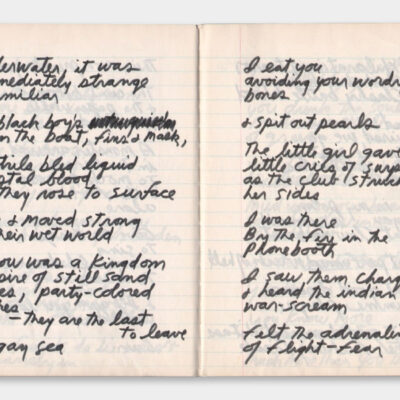 derwater, it was
mediately strange
amiliar
black boy's
m the boat, fins & mask,
trils bled liquid
stal blood
they rose to surface
& moved strong
heir wet world
ow was a kingdom
pire of still sand
es, party-colored
hes
— they are the last
to leave
gay sea
I eat you
avoiding your wordy
bones
& spit out pearls
The little girl gave
little cries of surp
as the club struck
her sides
I was there
By the fire in the
Phonebooth
I saw them charg
& heard the indian
war-scream
felt the adrenalin
of flight-fear